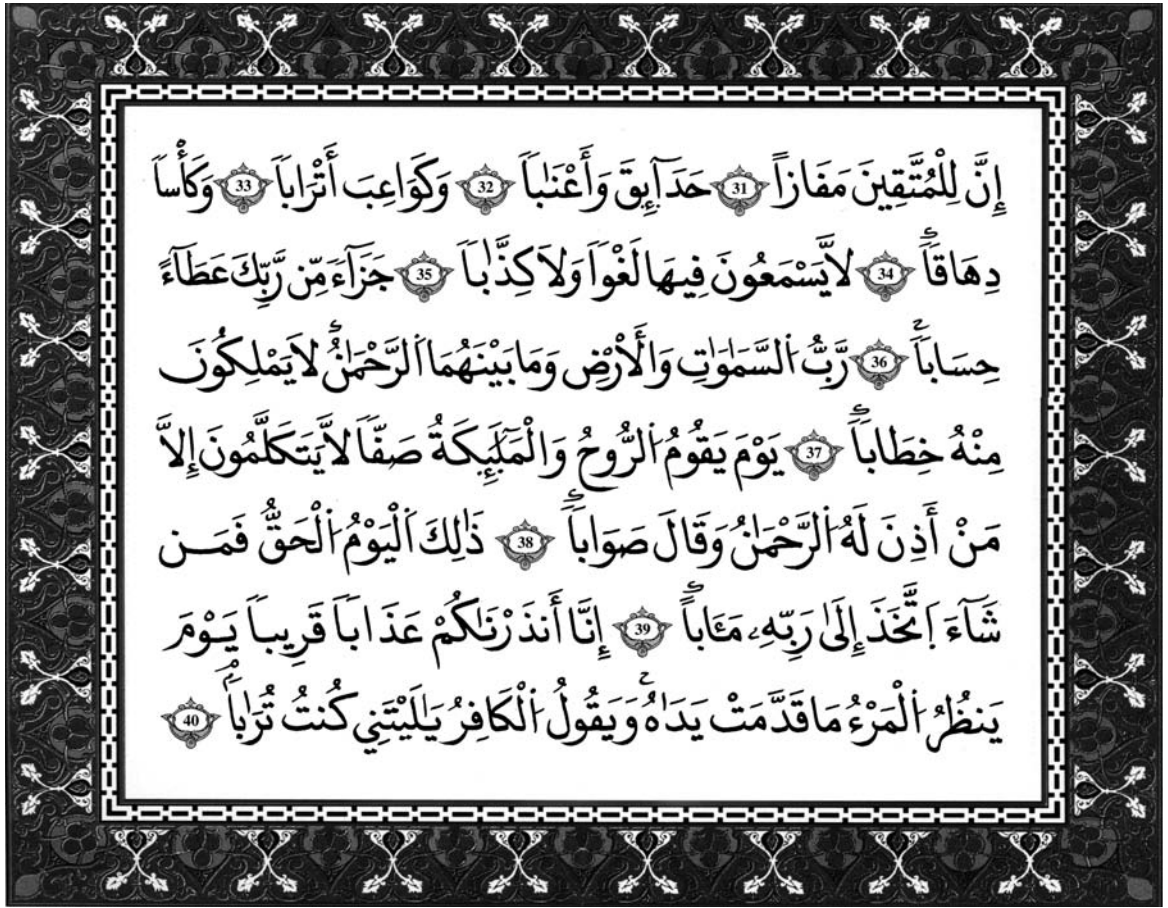 إِنَّ لِلْمُتَّقِينَ مَفَازاً 31 حَدَآئِقَ وَأَعْنَٰباً 32 وَكَوَاعِبَ أَتْرَاباً 33 وَكَأْساً
دِهَاقاً 34 لاَّ يَسْمَعُونَ فِيهَا لَغْواً وَلاَ كِذَّٰباً 35 جَزَآءً مِّن رَّبِّكَ عَطَآءً
حِسَاباً 36 رَّبُّ اَ۬لسَّمَٰوَٰتِ وَالْأَرْضِ وَمَا بَيْنَهُمَا اَ۬لرَّحْمَٰنُ لاَ يَمْلِكُونَ
مِنْهُ خِطَاباً 37 يَوْمَ يَقُومُ اُ۬لرُّوحُ وَالْمَلَٰٓئِكَةُ صَفّاً لاَّ يَتَكَلَّمُونَ إِلاَّ
مَنْ أَذِنَ لَهُ اُ۬لرَّحْمَٰنُ وَقَالَ صَوَاباً 38 ذَٰلِكَ اَ۬لْيَوْمُ اُ۬لْحَقُّ فَمَن
شَآءَ اَ۪تَّخَذَ إِلَىٰ رَبِّهِۦ مَـَٔاباً 39 إِنَّا أَنذَرْنَٰكُمْ عَذَاباً قَرِيباً يَوْمَ
يَنظُرُ اُ۬لْمَرْءُ مَا قَدَّمَتْ يَدَاهُ وَيَقُولُ اُ۬لْكَافِرُ يَٰلَيْتَنِي كُنتُ تُرَٰباً 40